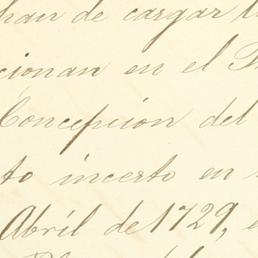 han de cargar
cionan en el
Concepcion del
to incerto en
Abril de 1729,